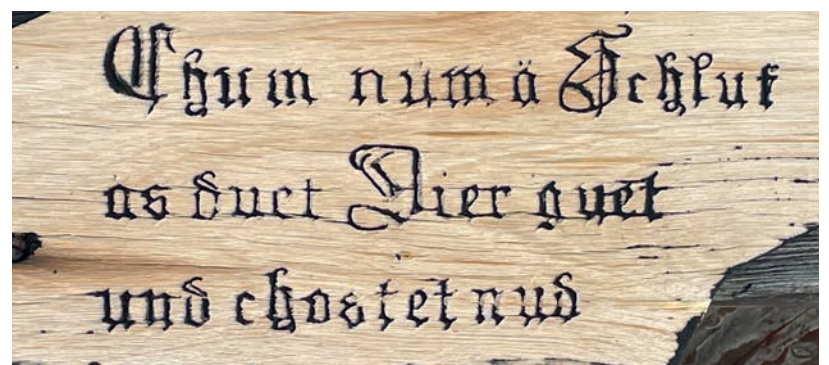 Chum num ä Schluk
as duet Dier guet
und chostet nud